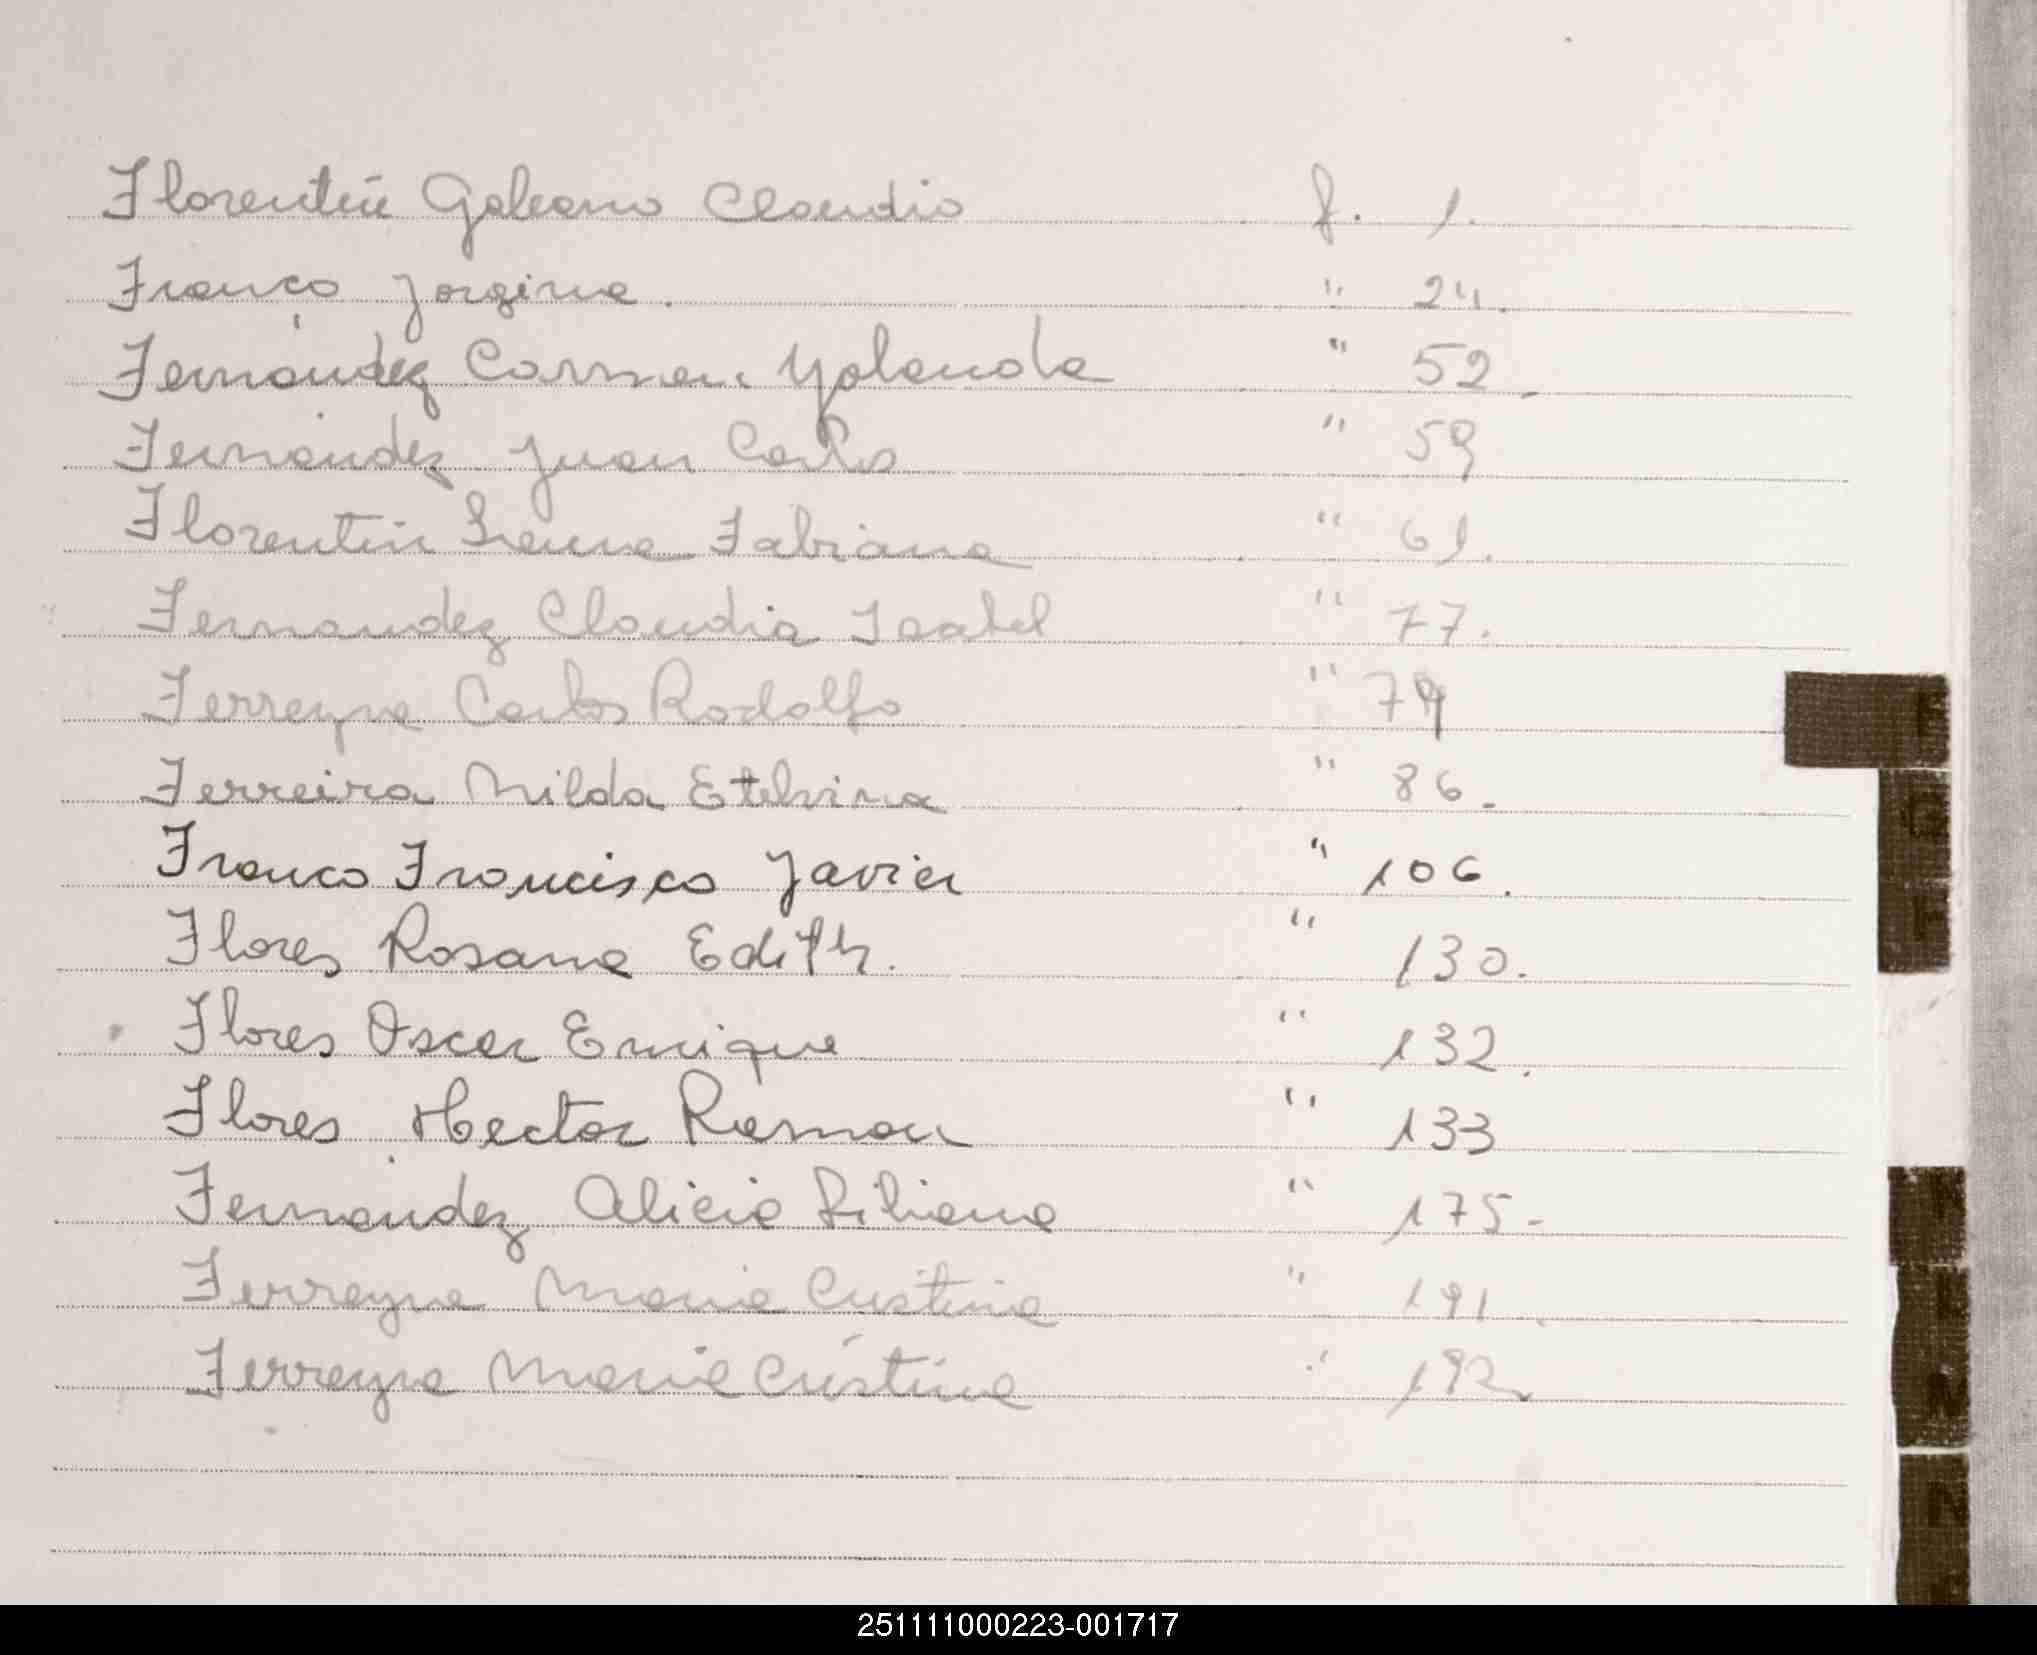 Florentin Galeano Claudio f. 1.
Franco Jorgina. " 24.
Fernández Carmen Yolanda " 52.
Fernandez Juan Carlos " 59
Florentin Fabiana " 61.
Fernandez Claudia Isabel " 77.
Ferreyra Carlos Rodolfo " 79
Ferreira Nilda Etelvina " 86.
Franco Francisco Javier " 106.
Flores Rosana Edith. " 130.
Flores Oscar Enrique " 132.
Flores Hector Ramon " 133
Fernandez Alicia Liliana " 175-
Ferreyra Maria Cristina " 191.
Ferreyra Maria Cristina " 192.
251111000223-001717